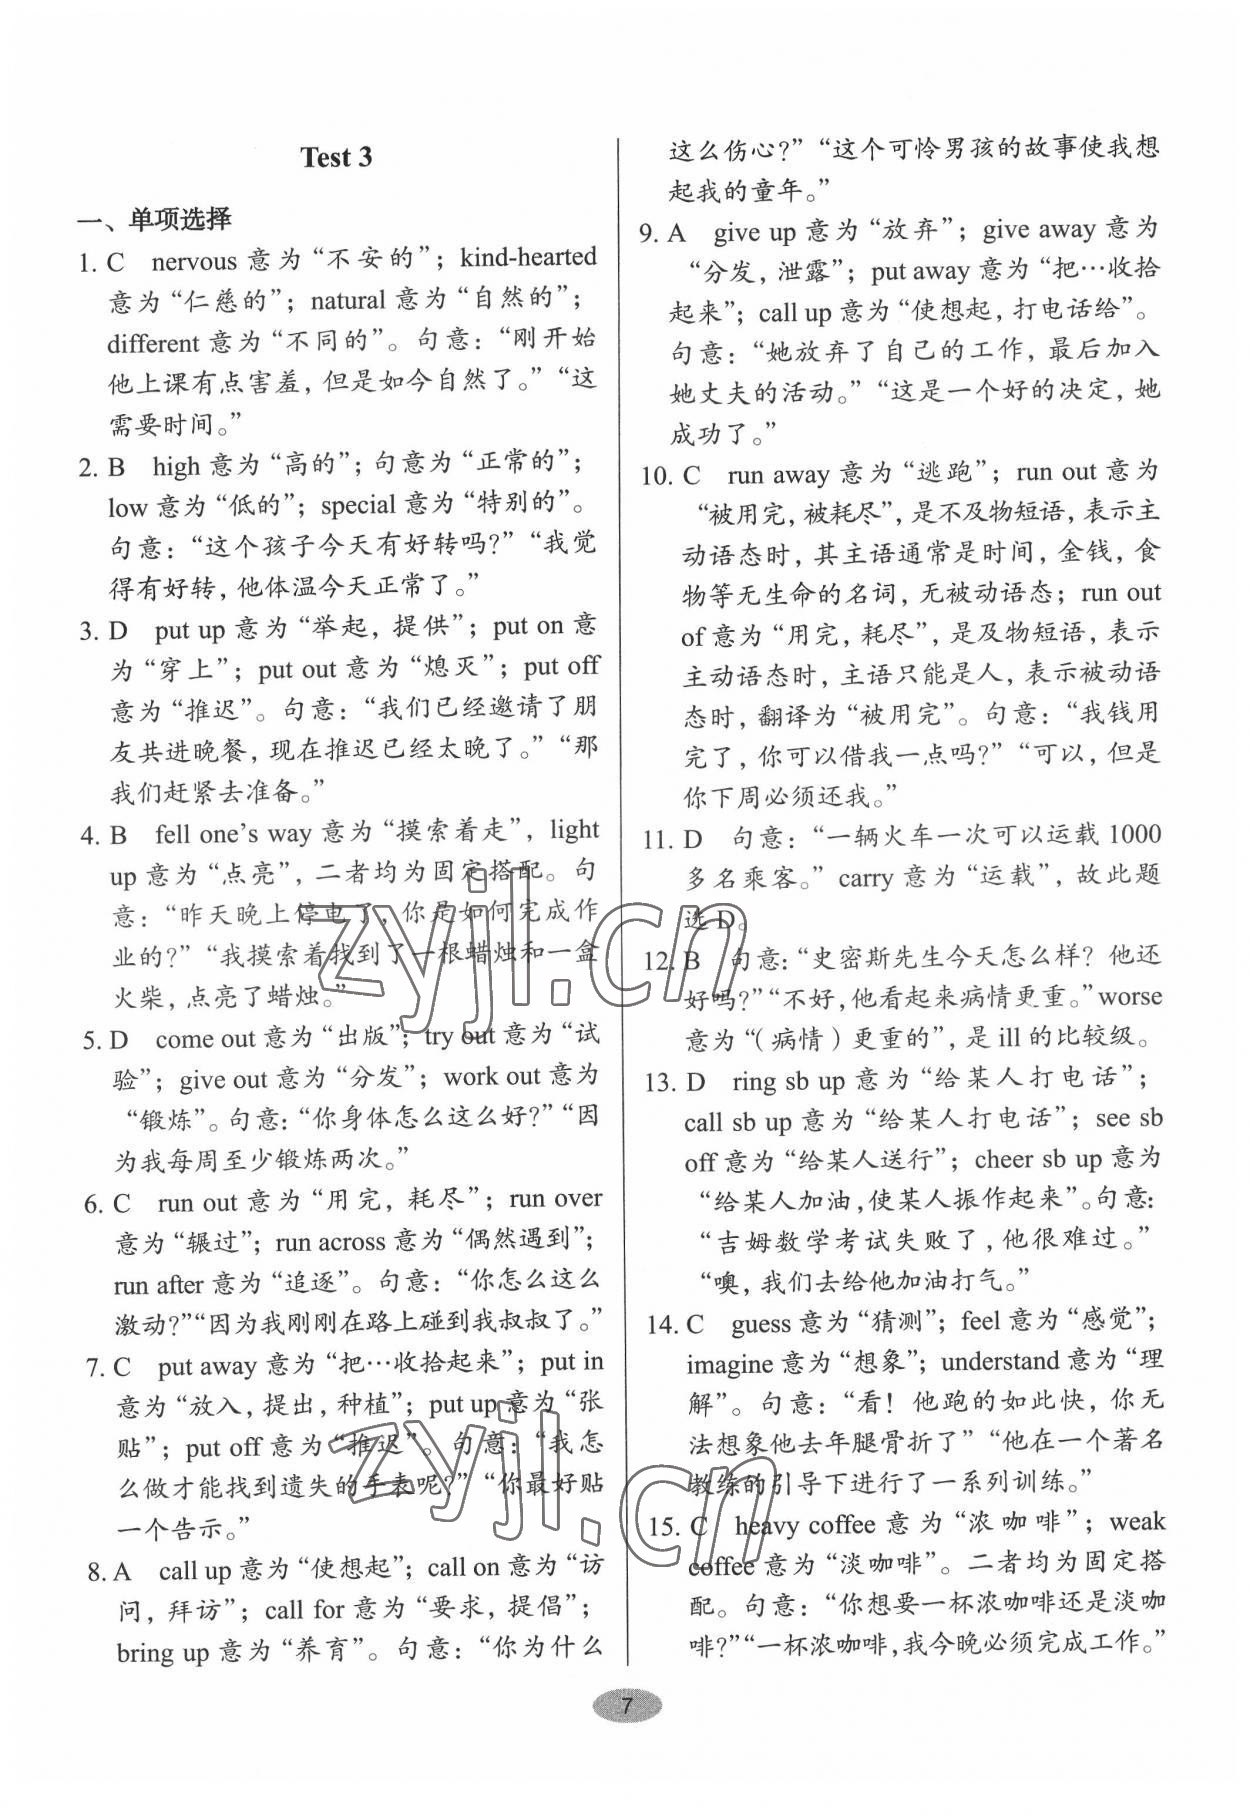 Test 3
一、单项选择
1. C nervous 意为“不安的”；kind-hearted
意为“仁慈的”；natural 意为“自然的”；
different 意为“不同的”。句意：“刚开始
他上课有点害羞，但是如今自然了。”“这
需要时间。”
2. B high 意为“高的”；句意为“正常的”；
low 意为“低的”；special 意为“特别的”。
句意：“这个孩子今天有好转吗？”“我觉
得有好转，他体温今天正常了。”
3. D put up 意为“举起，提供”；put on 意
为“穿上”；put out 意为“熄灭”；put off
意为“推迟”。句意：“我们已经邀请了朋
友共进晚餐，现在推迟已经太晚了。”“那
我们赶紧去准备。”
4. B fell one’s way 意为“摸索着走”，light
up 意为“点亮”，二者均为固定搭配。句
意：“昨天晚上停电了，你是如何完成作
业的？”“我摸索着找到了一根蜡烛和一盒
火柴，点亮了蜡烛。”
5. D come out 意为“出版”；try out 意为“试
验”；give out 意为“分发”；work out 意为
“锻炼”。句意：“你身体怎么这么好？”“因
为我每周至少锻炼两次。”
6. C run out 意为“用完，耗尽”；run over
意为“辗过”；run across 意为“偶然遇到”；
run after 意为“追逐”。句意：“你怎么这么
激动？”“因为我刚刚在路上碰到我叔叔了。”
7. C put away 意为“把…收拾起来”；put in
意为“放入，提出，种植”；put up 意为“张
贴”；put off 意为“推迟”。句意：“我怎
么做才能找到遗失的手表呢？”“你最好贴
一个告示。”
8. A call up 意为“使想起”；call on 意为“访
问，拜访”；call for 意为“要求，提倡”；
bring up 意为“养育”。句意：“你为什么
这么伤心？”“这个可怜男孩的故事使我想
起我的童年。”
9. A give up 意为“放弃”；give away 意为
“分发，泄露”；put away 意为“把…收拾
起来”；call up 意为“使想起，打电话给”。
句意：“她放弃了自己的工作，最后加入
她丈夫的活动。”“这是一个好的决定，她
成功了。”
10. C run away 意为“逃跑”；run out 意为
“被用完，被耗尽”，是不及物短语，表示主
动语态时，其主语通常是时间，金钱，食
物等无生命的名词，无被动语态；run out
of 意为“用完，耗尽”，是及物短语，表示
主动语态时，主语只能是人，表示被动语
态时，翻译为“被用完”。句意：“我钱用
完了，你可以借我一点吗？”“可以，但是
你下周必须还我。”
11. D 句意：“一辆火车一次可以运载 1000
多名乘客。”carry 意为“运载”，故此题
选 D。
12. B 句意：“史密斯先生今天怎么样？他还
好吗？”“不好，他看起来病情更重。”worse
意为“（病情）更重的”，是 ill 的比较级。
13. D ring sb up 意为“给某人打电话”；
call sb up 意为“给某人打电话”；see sb
off 意为“给某人送行”；cheer sb up 意为
“给某人加油，使某人振作起来”。句意：
“吉姆数学考试失败了，他很难过。”
“噢，我们去给他加油打气。”
14. C guess 意为“猜测”；feel 意为“感觉”；
imagine 意为“想象”；understand 意为“理
解”。句意：“看！他跑的如此快，你无
法想象他去年腿骨折了”“他在一个著名
教练的引导下进行了一系列训练。”
15. C heavy coffee 意为“浓咖啡”；weak
coffee 意为“淡咖啡”。二者均为固定搭
配。句意：“你想要一杯浓咖啡还是淡咖
啡？”“一杯浓咖啡，我今晚必须完成工作。”
zyjl.cn
zyjl.cn
7